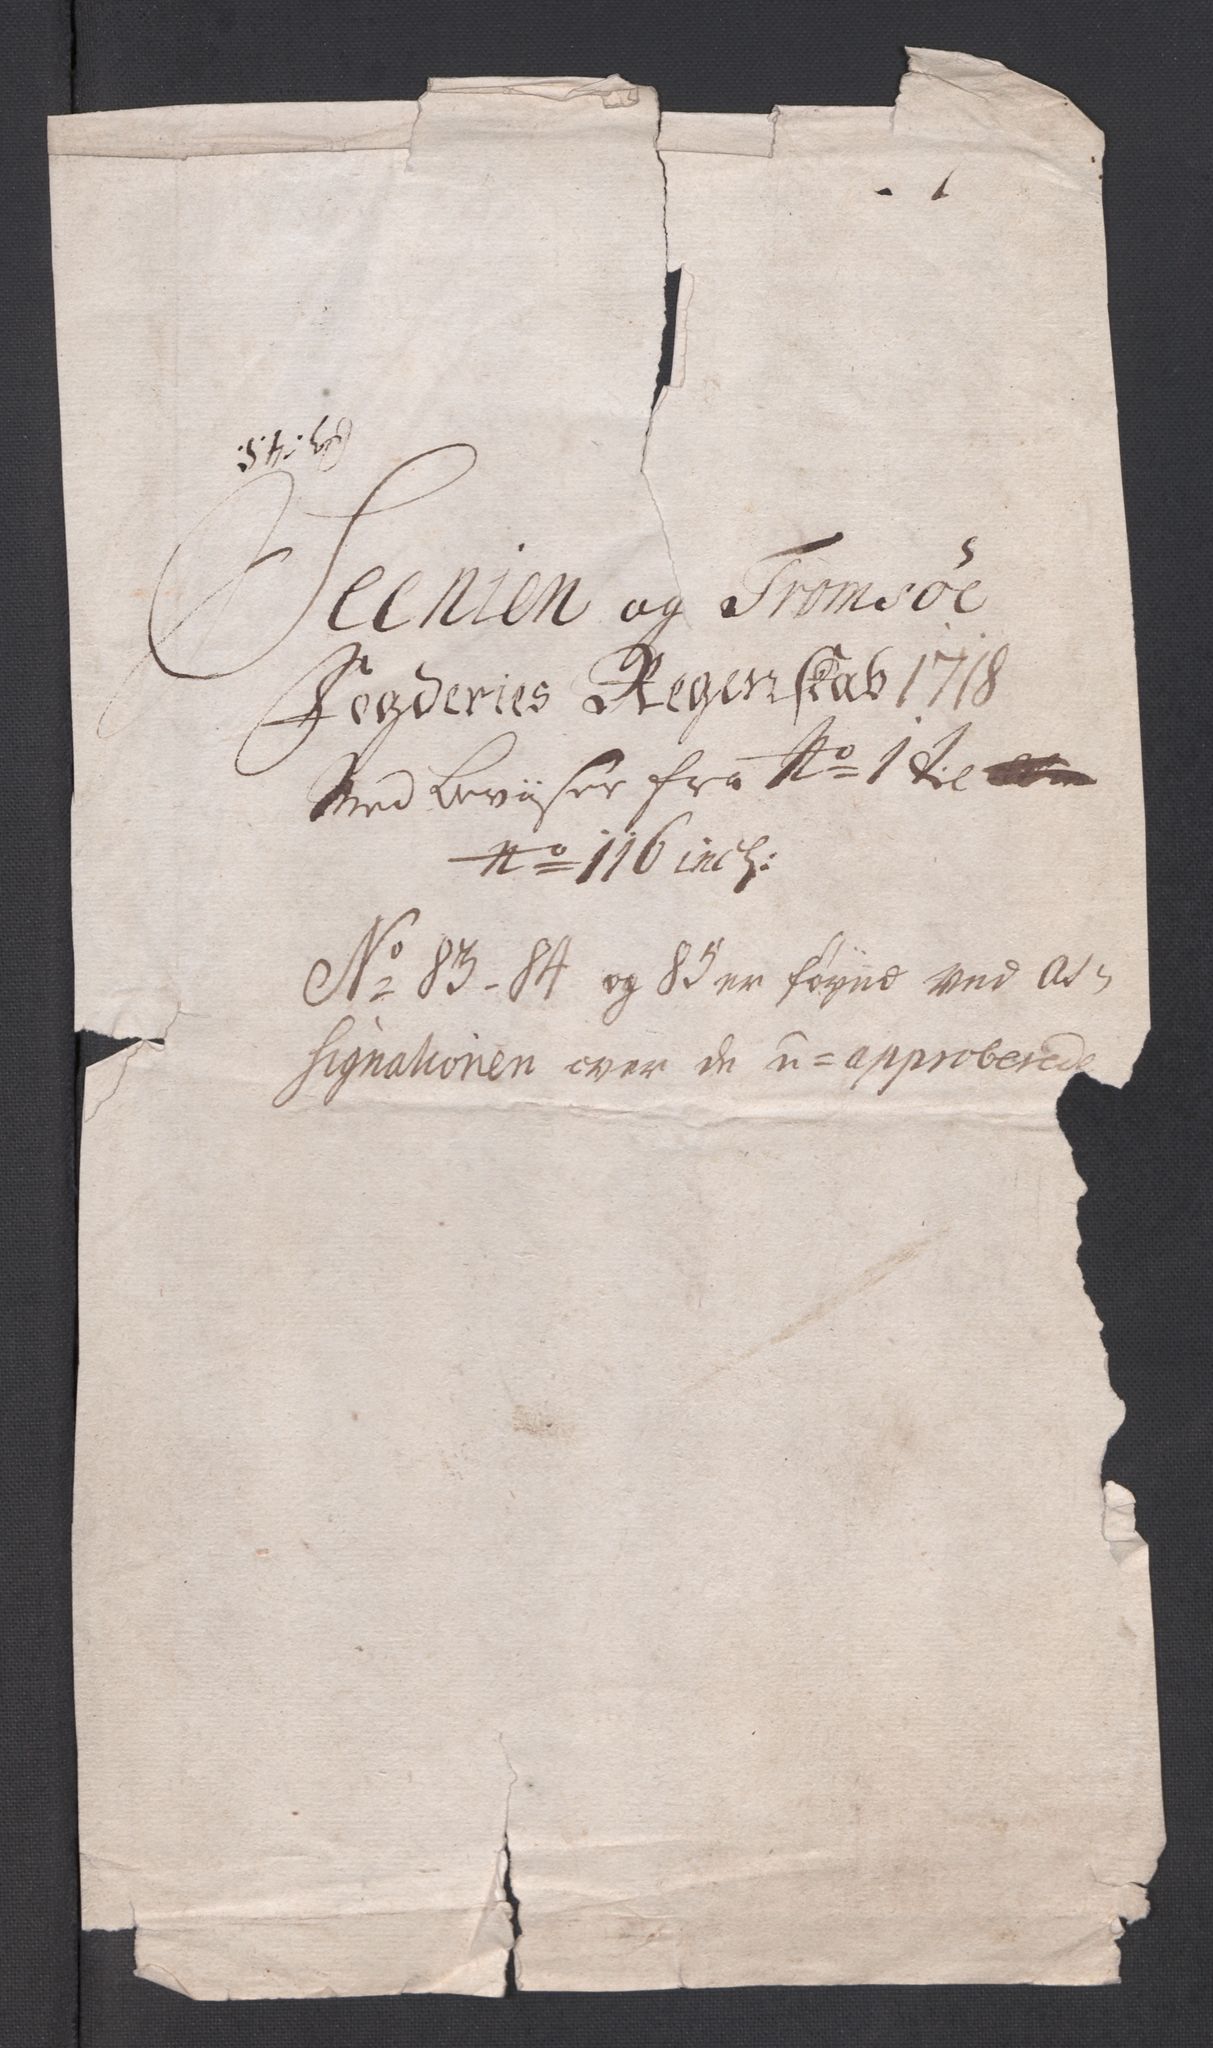 Seenien og Tromsöe
Fogderies Regenskab 1718
Med Beviiser fra No 1 til
No 116 incl:
No 83 - 84 og 85 er föyed ved As-
signationen over de u=approberede